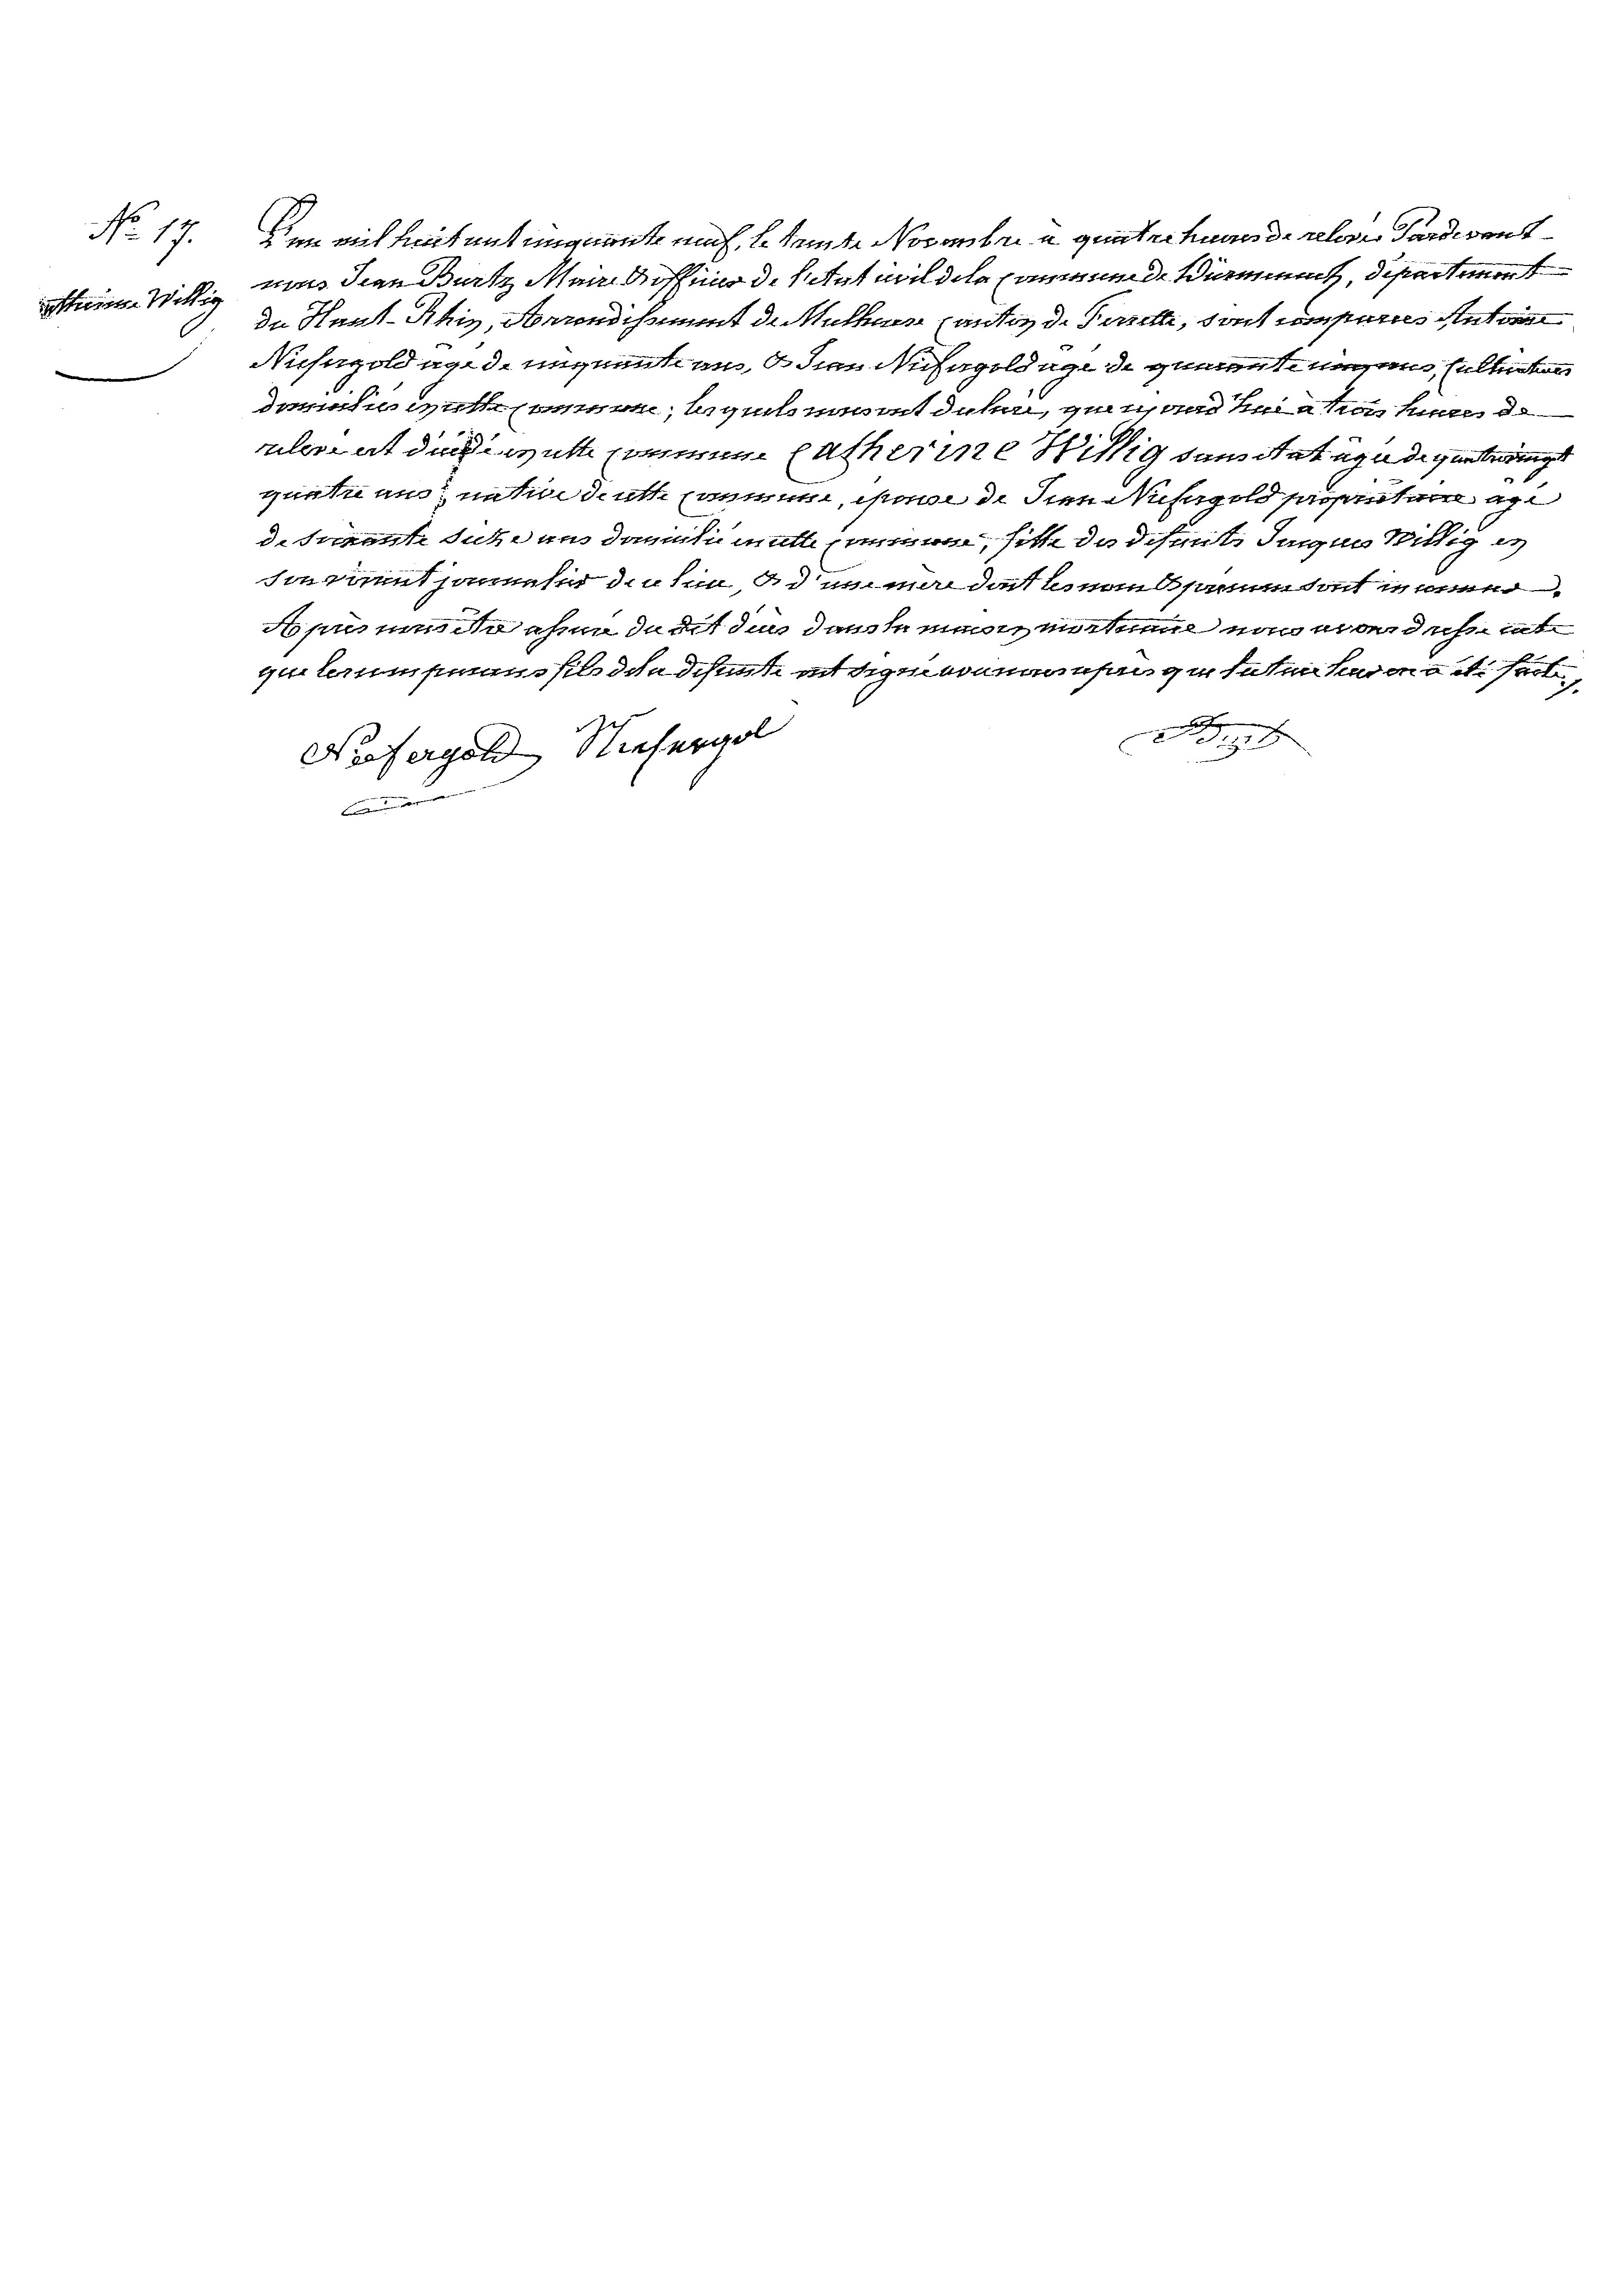 No 17.
Catherine Willig
L'an mil huit cent cinquante neuf, le trente Novembre à quatre heures de relevée Pardevant
nous Jean Burtz Maire & officier de l'état civil de la Commune de Dürmenach, département
du Haut-Rhin, Arrondissement de Mulhouse Canton de Ferrette, sont comparus Antoine
Niefergold âgé de cinquante ans, & Jean Niefergold âgé de quarante cinq ans, Cultivateurs
domiciliés en cette Commune; lesquels nous ont déclaré, que cejourd'hui à trois heures de
relevée est décédée en cette Commune Catherine Willig sans état âgée de quatrevingt
quatre ans, native de cette Commune, épouse de Jean Niefergold propriétaire âgé
de soixante seize ans domicilié en cette Commune, fille des défunts Jacques Willig en
son vivant journalier de ce lieu, & d'une mère dont les nom & prénom sont inconnus.
Après nous être assuré du dit décès dans la maison mortuaire nous avons dressé acte
que les comparans fils de la défunte ont signé avec nous après que lecture leur en a été faite.
Niefergold Niefergol